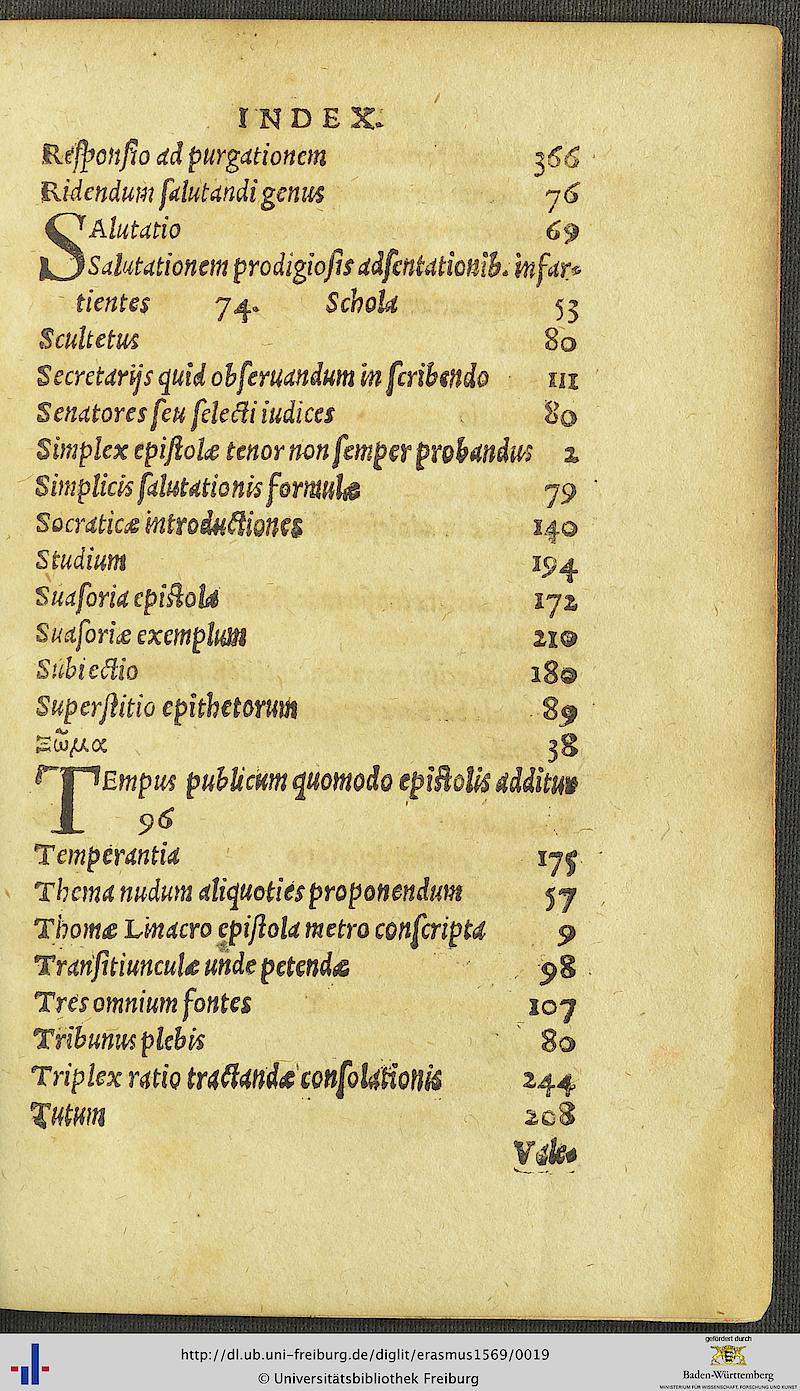 INDEX.
Reſponſio ad purgationem 366
Ridendum ſalutandi genus 76
SAlutatio 69
Salutationem prodigioſis adſentationib. infar-
tientes 74. Schola 53
Scultetus 80
Secretarijs quid obſeruandum in ſcribendo 111
Senatores ſeu ſelecti iudices 80
Simplex epiſtolæ tenor non ſemper probandus 2
Simplicis ſalutationis formulæ 79
Socraticæ introductiones 140
Studium 194
Suaſoria epiſtola 172
Suaſoriæ exemplum 210
Subiectio 180
Superſtitio epithetorum 89
Ξῶμα 38
TEmpus publicum quomodo epiſtolis additur
96
Temperantia 175
Thema nudum aliquoties proponendum 57
Thomæ Linacro epiſtola metro conſcripta 9
Tranſitiunculæ unde petendæ 98
Tres omnium fontes 107
Tribunus plebis 80
Triplex ratio tractandæ conſolationis 244
Tutum 208
Vale.
http://dl.ub.uni-freiburg.de/diglit/erasmus1569/0019
© Universitätsbibliothek Freiburg
gefördert durch
Baden-Württemberg
MINISTERIUM FÜR WISSENSCHAFT, FORSCHUNG UND KUNST